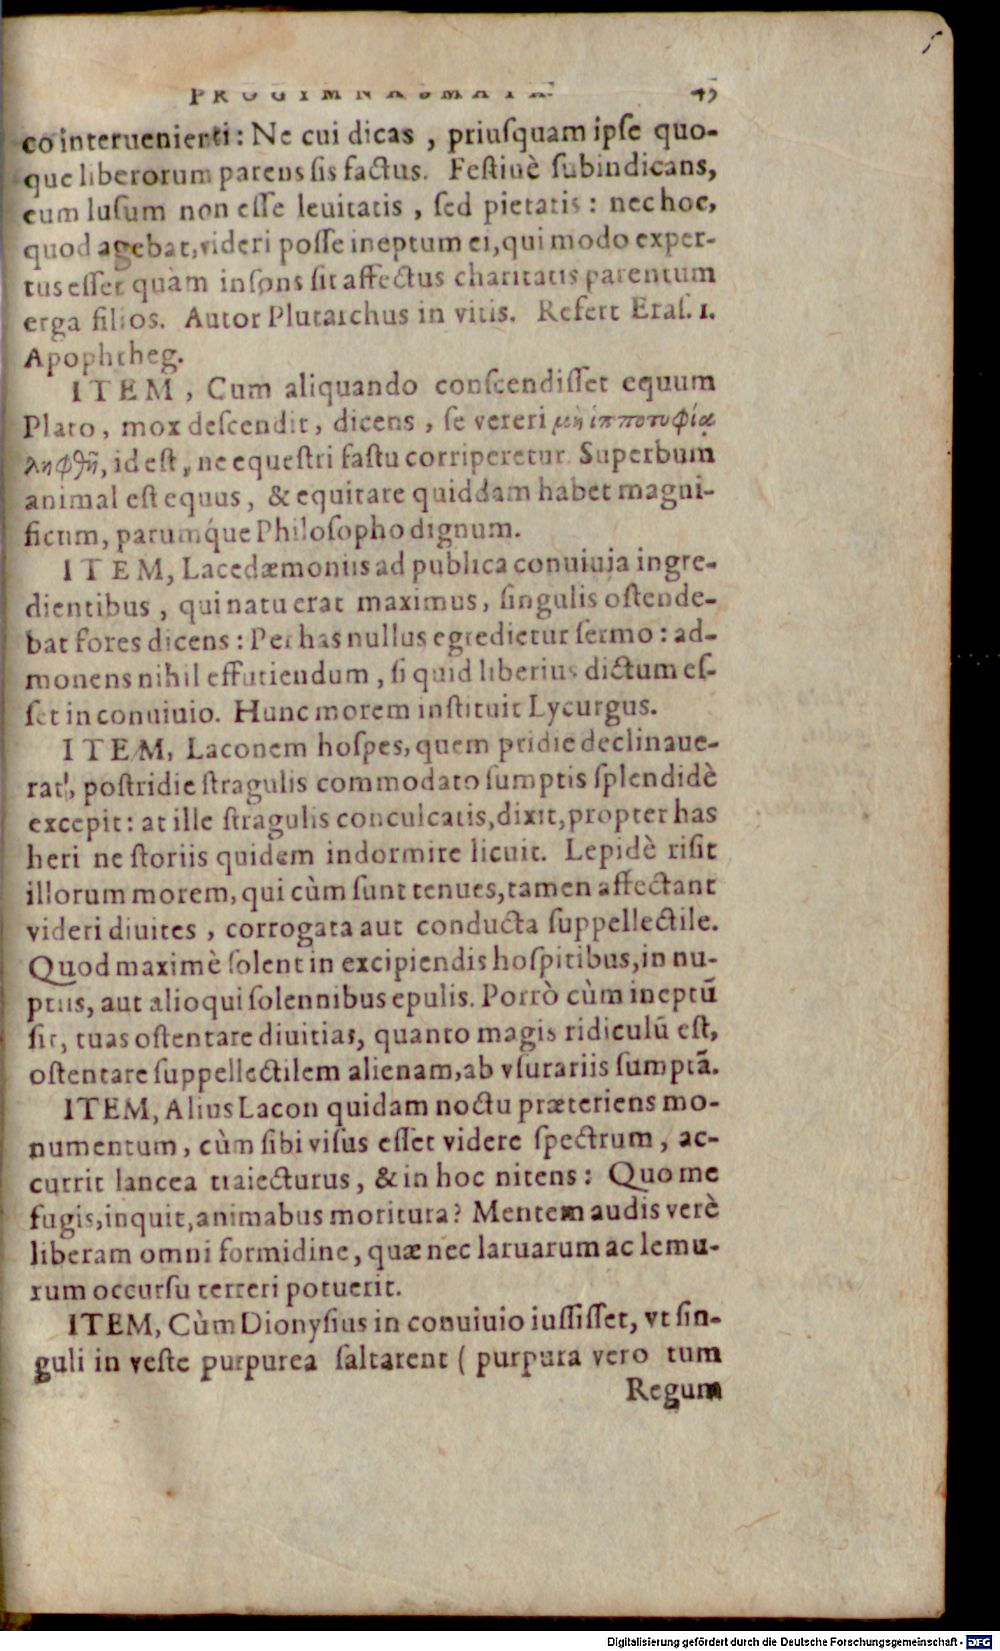 PROGIMNASMATA. 45
co interuenienti: Ne cui dicas, priuſquam ipſe quo-
que liberorum parens ſis factus. Feſtiuè ſubindicans,
eum luſum non eſſe leuitatis, ſed pietatis: nec hoc,
quod agebat, videri poſſe ineptum ei, qui modo exper-
tus eſſet quàm inſons ſit affectus charitatis parentum
erga filios. Autor Plutarchus in vitis. Refert Eraſ. 1.
Apophtheg.
ITEM, Cum aliquando conſcendiſſet equum
Plato, mox deſcendit, dicens, ſe vereri μὴ ἱπποτυφίᾳ
ληφθῆ, id eſt, ne equeſtri faſtu corriperetur. Superbum
animal eſt equus, & equitare quiddam habet magni-
ficum, parumq́ue Philoſopho dignum.
ITEM, Lacedæmoniis ad publica conuiuia ingre-
dientibus, qui natu erat maximus, ſingulis oſtende-
bat fores dicens: Per has nullus egredietur ſermo: ad-
monens nihil effutiendum, ſi quid liberius dictum eſ-
ſet in conuiuio. Hunc morem inſtituit Lycurgus.
ITEM, Laconem hoſpes, quem pridie declinaue-
rat, poſtridie ſtragulis commodato ſumptis ſplendidè
excepit: at ille ſtragulis conculcatis, dixit, propter has
heri ne ſtoriis quidem indormire licuit. Lepidè riſit
illorum morem, qui cùm ſunt tenues, tamen affectant
videri diuites, corrogata aut conducta ſuppellectile.
Quod maximè ſolent in excipiendis hoſpitibus, in nu-
ptiis, aut alioqui ſolennibus epulis. Porrò cùm ineptũ
ſit, tuas oſtentare diuitias, quanto magis ridiculũ eſt,
oſtentare ſuppellectilem alienam, ab vſurariis ſumptã.
ITEM, Alius Lacon quidam noctu præteriens mo-
numentum, cùm ſibi viſus eſſet videre ſpectrum, ac-
currit lancea traiecturus, & in hoc nitens: Quo me
fugis, inquit, animabus moritura? Mentem audis verè
liberam omni formidine, quæ nec laruarum ac lemu-
rum occurſu terreri potuerit.
ITEM, Cùm Dionyſius in conuiuio iuſſiſſet, vt ſin-
guli in veſte purpurea ſaltarent (purpura vero tum
Regum
Digitalisierung gefördert durch die Deutsche Forschungsgemeinschaft - DFG